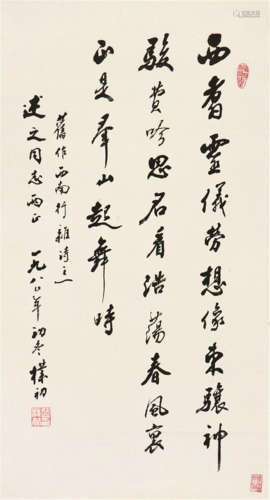 西看灵仪劳想像東驤神
駿費吟思君看浩蕩春風裏
正是羣山起舞時
舊作西南行雜诗之一
述之同志两正
一九八〇年初冬樸初